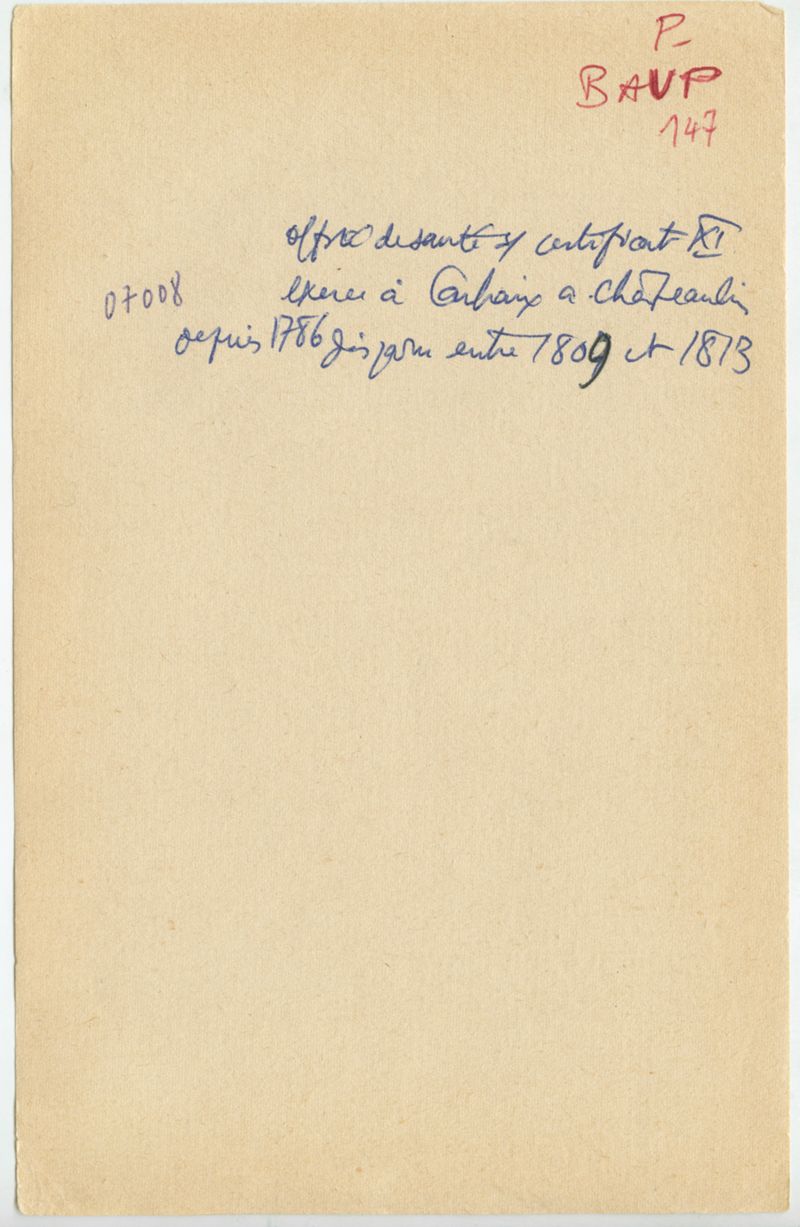 P-
BAUP
147
officier de santé s/ certificat XI
07008
exerce à Carhaix a Châteaulin
depuis 1786 disparu entre 1809 et 1813